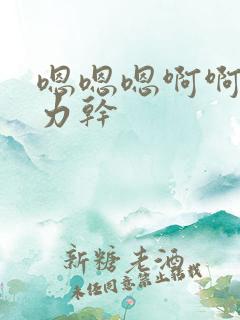 嗯嗯嗯啊啊
力幹
新糖老酒
未经同意禁止转载